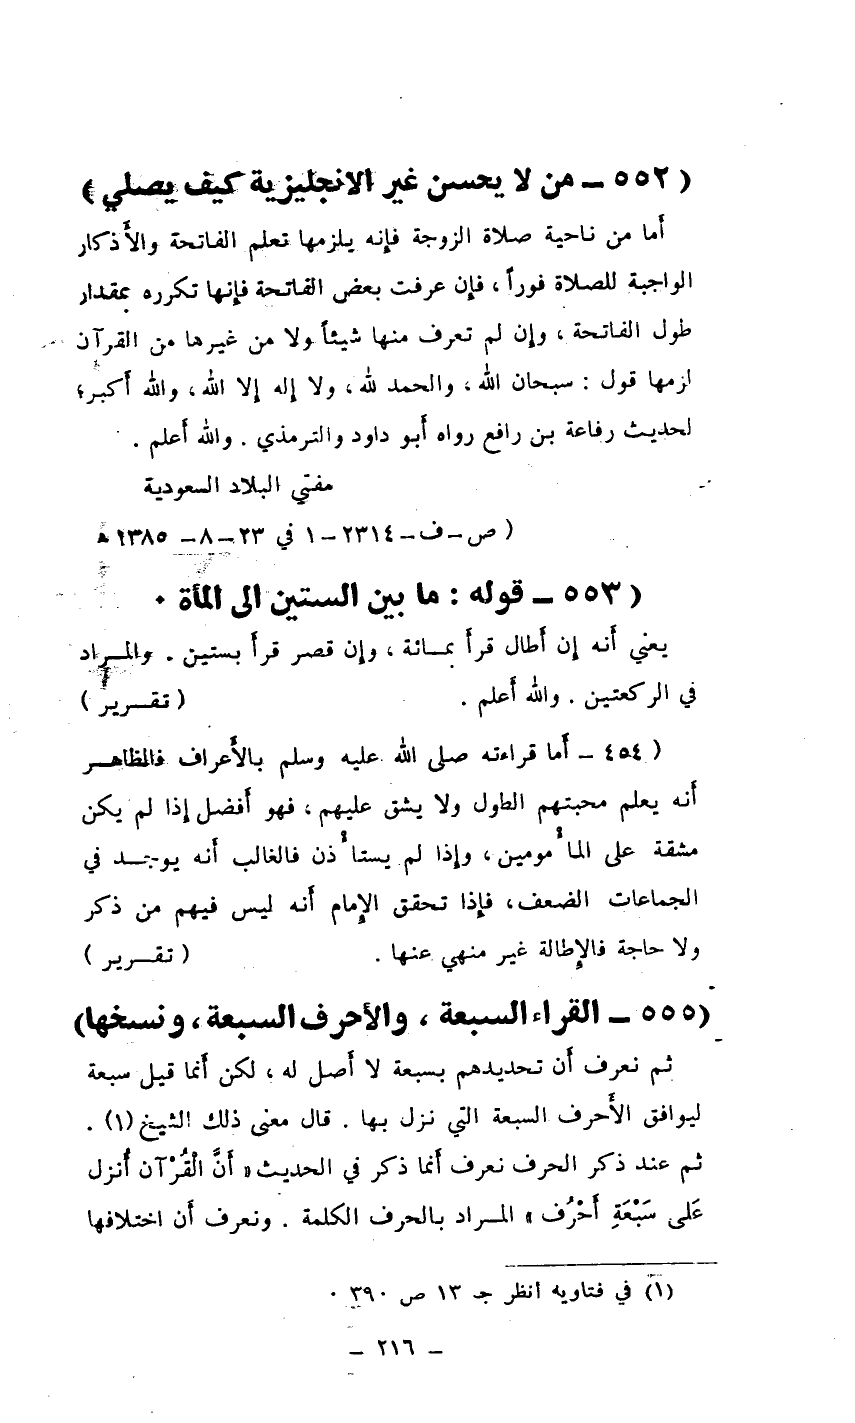 ( ٥٥٢ – من لا يحسن غير الانجليزية كيف يصلي )
أما من ناحية صلاة الزوجة فإنه يلزمها تعلم الفاتحة والأذكار
الواجبة للصلاة فوراً ، فإن عرفت بعض الفاتحة فإنها تكرره بمقدار
طول الفاتحة ، وإن لم تعرف منها شيئاً ولا من غيرها من القرآن
لزمها قول : سبحان الله ، والحمد لله ، ولا إله إلا الله ، والله أكبر ؛
لحديث رفاعة بن رافع رواه أبو داود والترمذي . والله أعلم .
مفتي البلاد السعودية
( ص–ف–٢٣١٤–١ في ٢٣–٨– ١٣٨٥ ه
( ٥٥٣ – قوله : ما بين الستين الى المأة ٠
يعني أنه إن أطال قرأ بمائة ، وإن قصر قرأ بستين . والمراد
في الركعتين . والله أعلم . ( تقرير )
( ٤٥٤ – أما قراءته صلى الله عليه وسلم بالأعراف فالظاهر
أنه يعلم محبتهم الطول ولا يشق عليهم ، فهو أفضل إذا لم يكن
مشقة على المأمومين ، وإذا لم يستأذن فالغالب أنه يوجد في
الجماعات الضعف ، فإذا تحقق الإمام أنه ليس فيهم من ذكر
ولا حاجة فالإطالة غير منهي عنها . ( تقرير )
(٥٥٥ – القراء السبعة ، والأحرف السبعة ، ونسخها)
ثم نعرف أن تحديدهم بسبعة لا أصل له ، لكن أنما قيل سبعة
ليوافق الأحرف السبعة التي نزل بها . قال معنى ذلك الشيخ (١) .
ثم عند ذكر الحرف نعرف أنما ذكر في الحديث « أَنَّ الْقُرْآن أُنزل
عَلى سَبْعَةِ أَحْرُف » المراد بالحرف الكلمة . ونعرف أن اختلافها
(١) في فتاويه انظر جـ ١٣ ص ٣٩٠ ٠
– ٢١٦ –